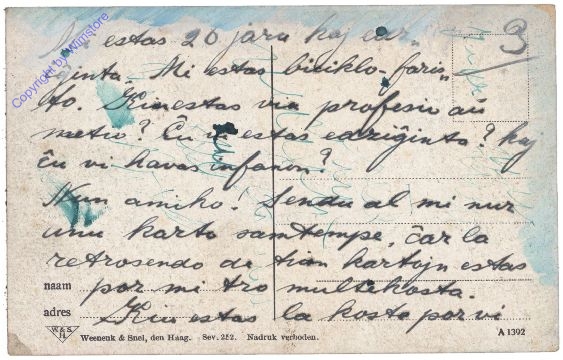 Mi estas 20 jara kaj
ĝinta. Mi estas biciklo-faris„
to. Kiu estas via profesio aŭ
metio? Ĉu vi estas edziĝinta? kaj
ĉu vi havas infanon?
Nun amiko! Sendu al mi nur
unu karto samtempe, ĉar la
retrosendo de tiom kartojn estas
por mi tro multekosta.
Kiu estas la kosto por vi
3
naam
adres
W&S
H
Weenenk & Snel, den Haag. Sev. 252. Nadruk verboden.
A 1392
Copyright by Wimstore